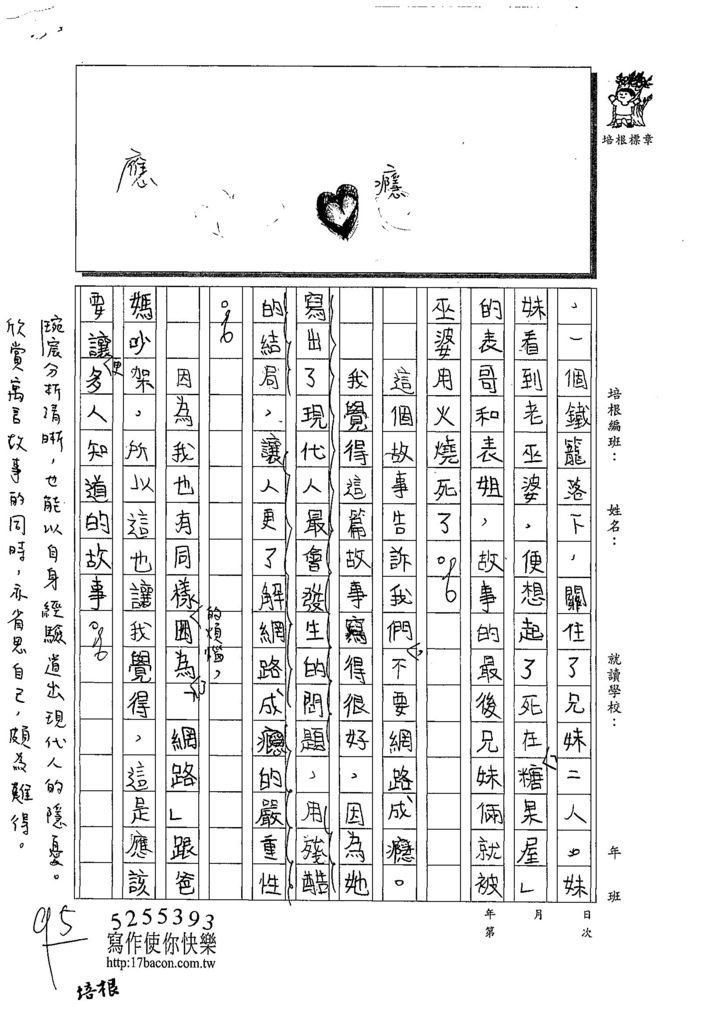 培根標章
應
癮
培根編班：
姓名：
就讀學校：
年 班
日 次
月
年 第
，一個鐵籠落下，關住了兄妹二人。妹
妹看到老巫婆，便想起了死在「糖果屋」
的表哥和表姐，故事的最後兄妹倆就被
巫婆用火燒死了。
這個故事告訴我們，不要網路成癮。
我覺得這篇故事寫得很好，因為她
寫出了現代人最會發生的問題，用殘酷
的結局，讓人更了解網路成癮的嚴重性
。
因為我也有同樣的煩惱，因為了「網路」跟爸
媽吵架，所以這也讓我覺得，這是應該
要讓更多人知道的故事。
琬宸分析清晰，也能以自身經驗道出現代人的隱憂。
欣賞寓言故事的同時，亦省思自己，頗為難得。
95
5255393
寫作使你快樂
http:17bacon.com.tw
培根